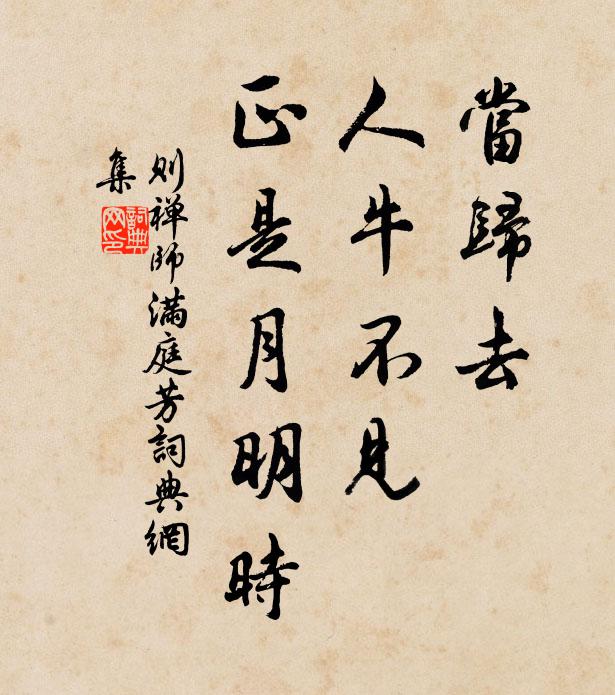 當歸去
人牛不見
正是月明時
則禅師滿庭芳詞典網
集
詞典
网印